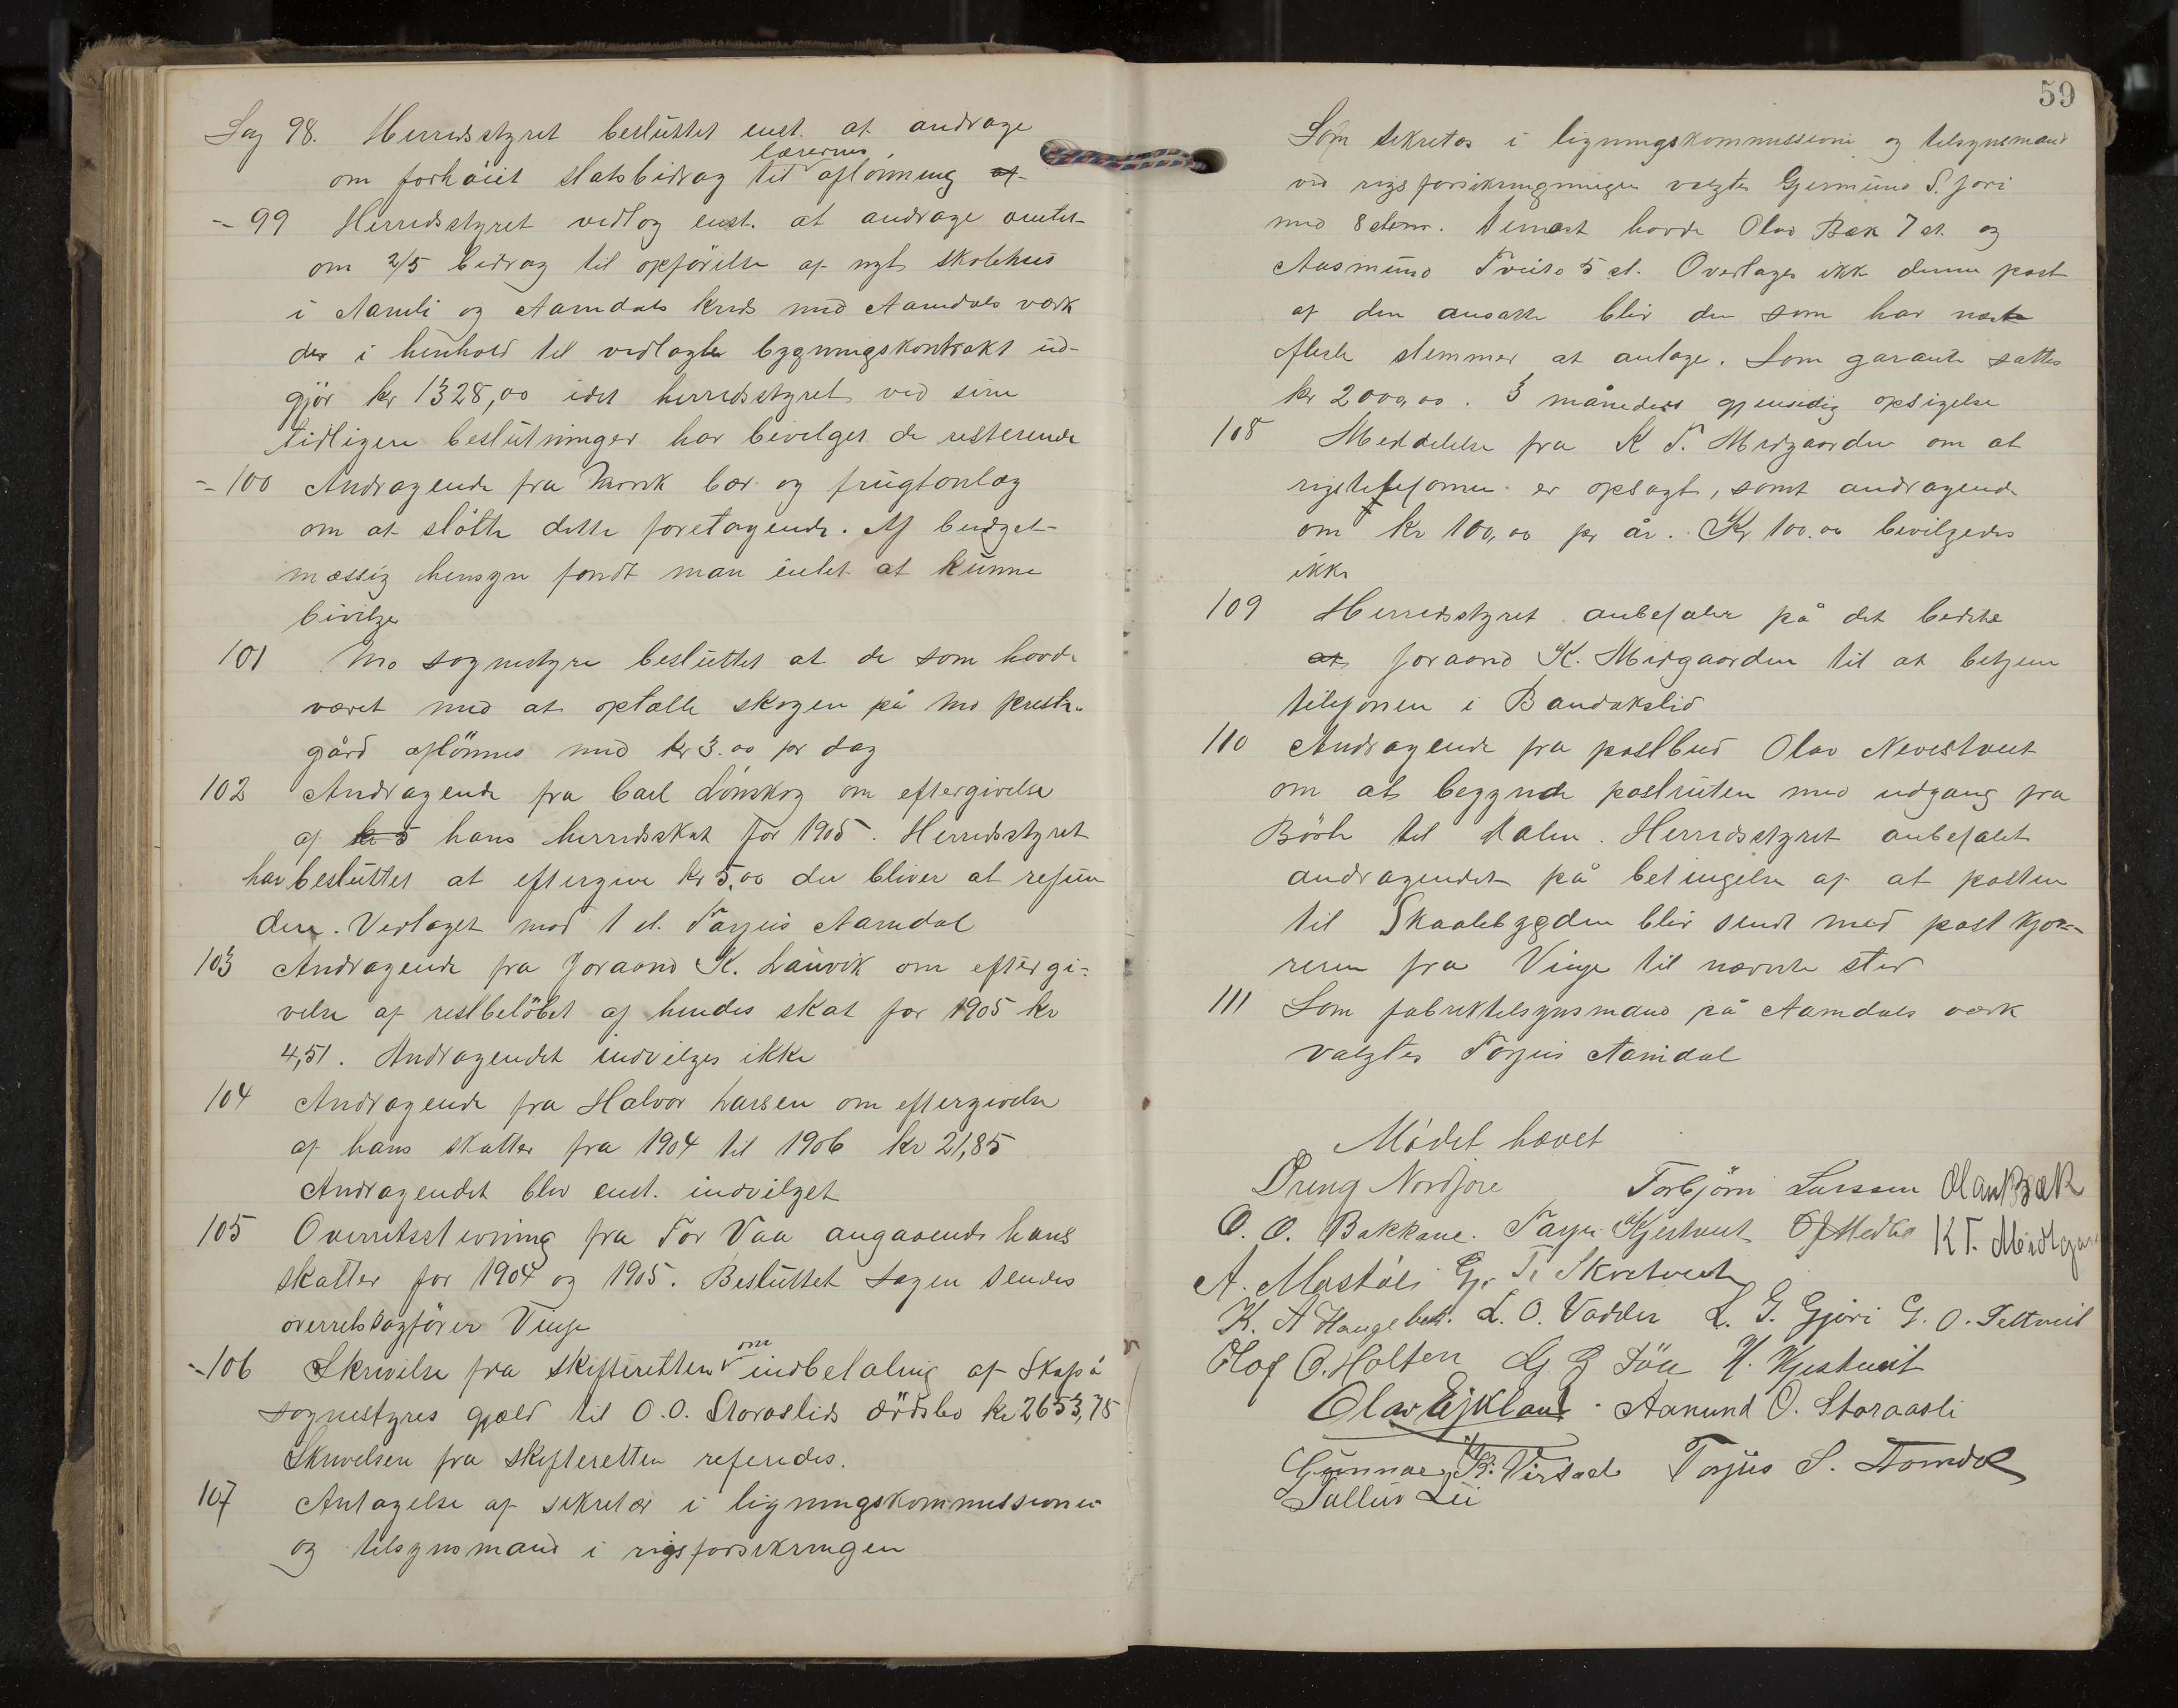 Sag 98. Herredsstyret besluttet enst. at andrage
lærernes
om forhöiet statsbidrag til aflönning af
- 99 Herredsstyret vedtog enst. at andrage amtet
om 2/5 bidrag til opförelse af nyt skolehus
i Aamli og Aamdals kreds med Aamdals værk
der i henhold til vedlagte bygningskontrakt ud-
gjör kr 1328,00 idet herredsstyret ved sine
tidligere beslutninger har bevilget de resterende
- 100 Andragende fra bær og frugtanlæg
om at stötte dette foretagende. Af budget-
mæssig hensyn fandt man intet at kunne
bevilge
101 Mo sognestyre besluttet at de som havde
været med at optælle skogen på Mo preste-
gård aflönnes med kr 3.00 pr dag
102 Andragende fra Carl Lönskog om eftergivelse
af kr 5 hans herredsskat for 1905. Herredsstyret
har besluttet at eftergive kr 5,00 der bliver at refun
dere. Vedtaget mod 1 st. Tarjus Aamdal
103 Andragende fra Joraand K. Lauvik om eftergi-
velse af restbelöbet af hendes skat for 1905 kr
4,51. Andragendet indvilges ikke
104 Andragende fra Halvor Larsen om eftergivelse
af hans skatter fra 1904 til 1906 kr 21,85
Andragendet blev enst. indvilget
105 Overretsstevning fra Tor Vaa angaaende hans
skatter for 1904 og 1905. Besluttet sagen sendes
overretssagförer Vinje
om
- 106 Skrivelse fra skifteretten indbetaling af Skafså
sognestyres gjæld til O.O. Storaslids dödsbo kr 2653,75
Skrivelsen fra skifteretten referedes.
107 Antagelse af sekretær i ligningskommissionen
og tilsynsmand i rigsforsikringen
59
Som sekretær i ligningskommissionen og tilsynsmand
ved rigsforsikringen valgtes Gjermund S. Jori
med 8 stem. Dernæst havde Olav Bæk 7 st. og
Aasmund Tveito 5 st. Overtages ikke denne post
af den ansatte blir den som har næst
fleste stemmer at antage. Som garanti sattes
kr 2000,00. 3 måneders gjensidig opsigelse
108 Meddelelse fra K T. Midgaarden om at
rigstelefonen er opsagt, samt andragende
om kr 100,00 pr år. Kr 100.00 bevilgedes
ikke
109 Herredsstyret anbefaler på det bedste
at Joraand K. Midgaarden til at betjene
telefonen i Bandakslid
110 Andragende fra postbud Olav Nevestveit
om at begynde postruten med udgang fra
Börte til Dalen. Herredsstyret anbefalet
andragendet på betingelse af at posten
til Skaalebygden blir sendt med postkjör-
reren fra Vinje til nærmeste sted
111 Som fabriktilsynsmand på Aamdals værk
valgtes Torjus Aamdal
Mödet hævet
Dreng Nordjore Torbjörn Larssen Olav Bæk
O. O. Bakkane. Tarjei Kjestveit K T. Midtgaar
A. Mostöli Gr. T. Skretveit
K. A Haugebest. L. O. Vadder L. G. Gjöri G. O. Teltveit
Olof O. Holten G. G H. Kjestveit
Olav Ejkland Aanund O. Storaasli
Gunnar K. Torjus S. Aamdal
Talleiv Lei